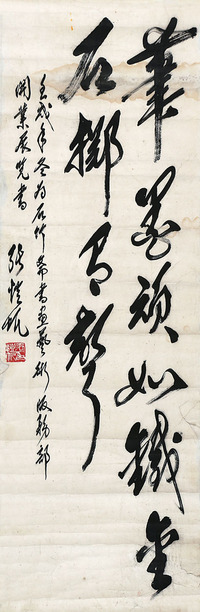 筆墨須如鐵金
石擲有聲
壬戌年冬为石竹齋書画藝術服務部
開業展覽書
張愷帆